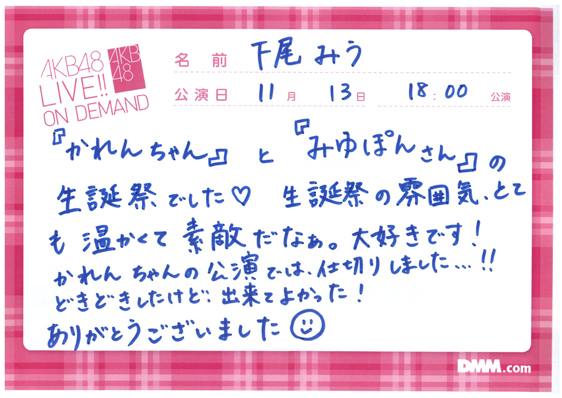 AKB48
LIVE!!
ON DEMAND
AKB
48
名前 下尾みう
公演日 11月 13日 18:00 公演
『かれんちゃん』と『みゆぽんさん』の
生誕祭でした♡ 生誕祭の雰囲気、とて
も温かくて素敵だなぁ。大好きです!
かれんちゃんの公演では、仕切りしました...!!
どきどきしたけど、出来てよかった!
ありがとうございました☺
DMM.com